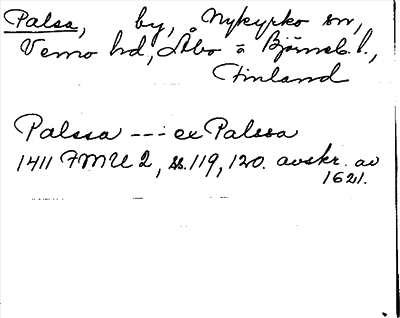 Palsa, by, Nykyrko sn,
Vemo hd, Åbo o Björneb. l.,
Finland
Palssa --- ex Palssa
1411 FMU 2, ss. 119, 120. avskr. av
1621.